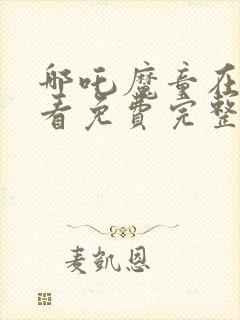 哪吒魔童在
看免费完整
麦凯恩